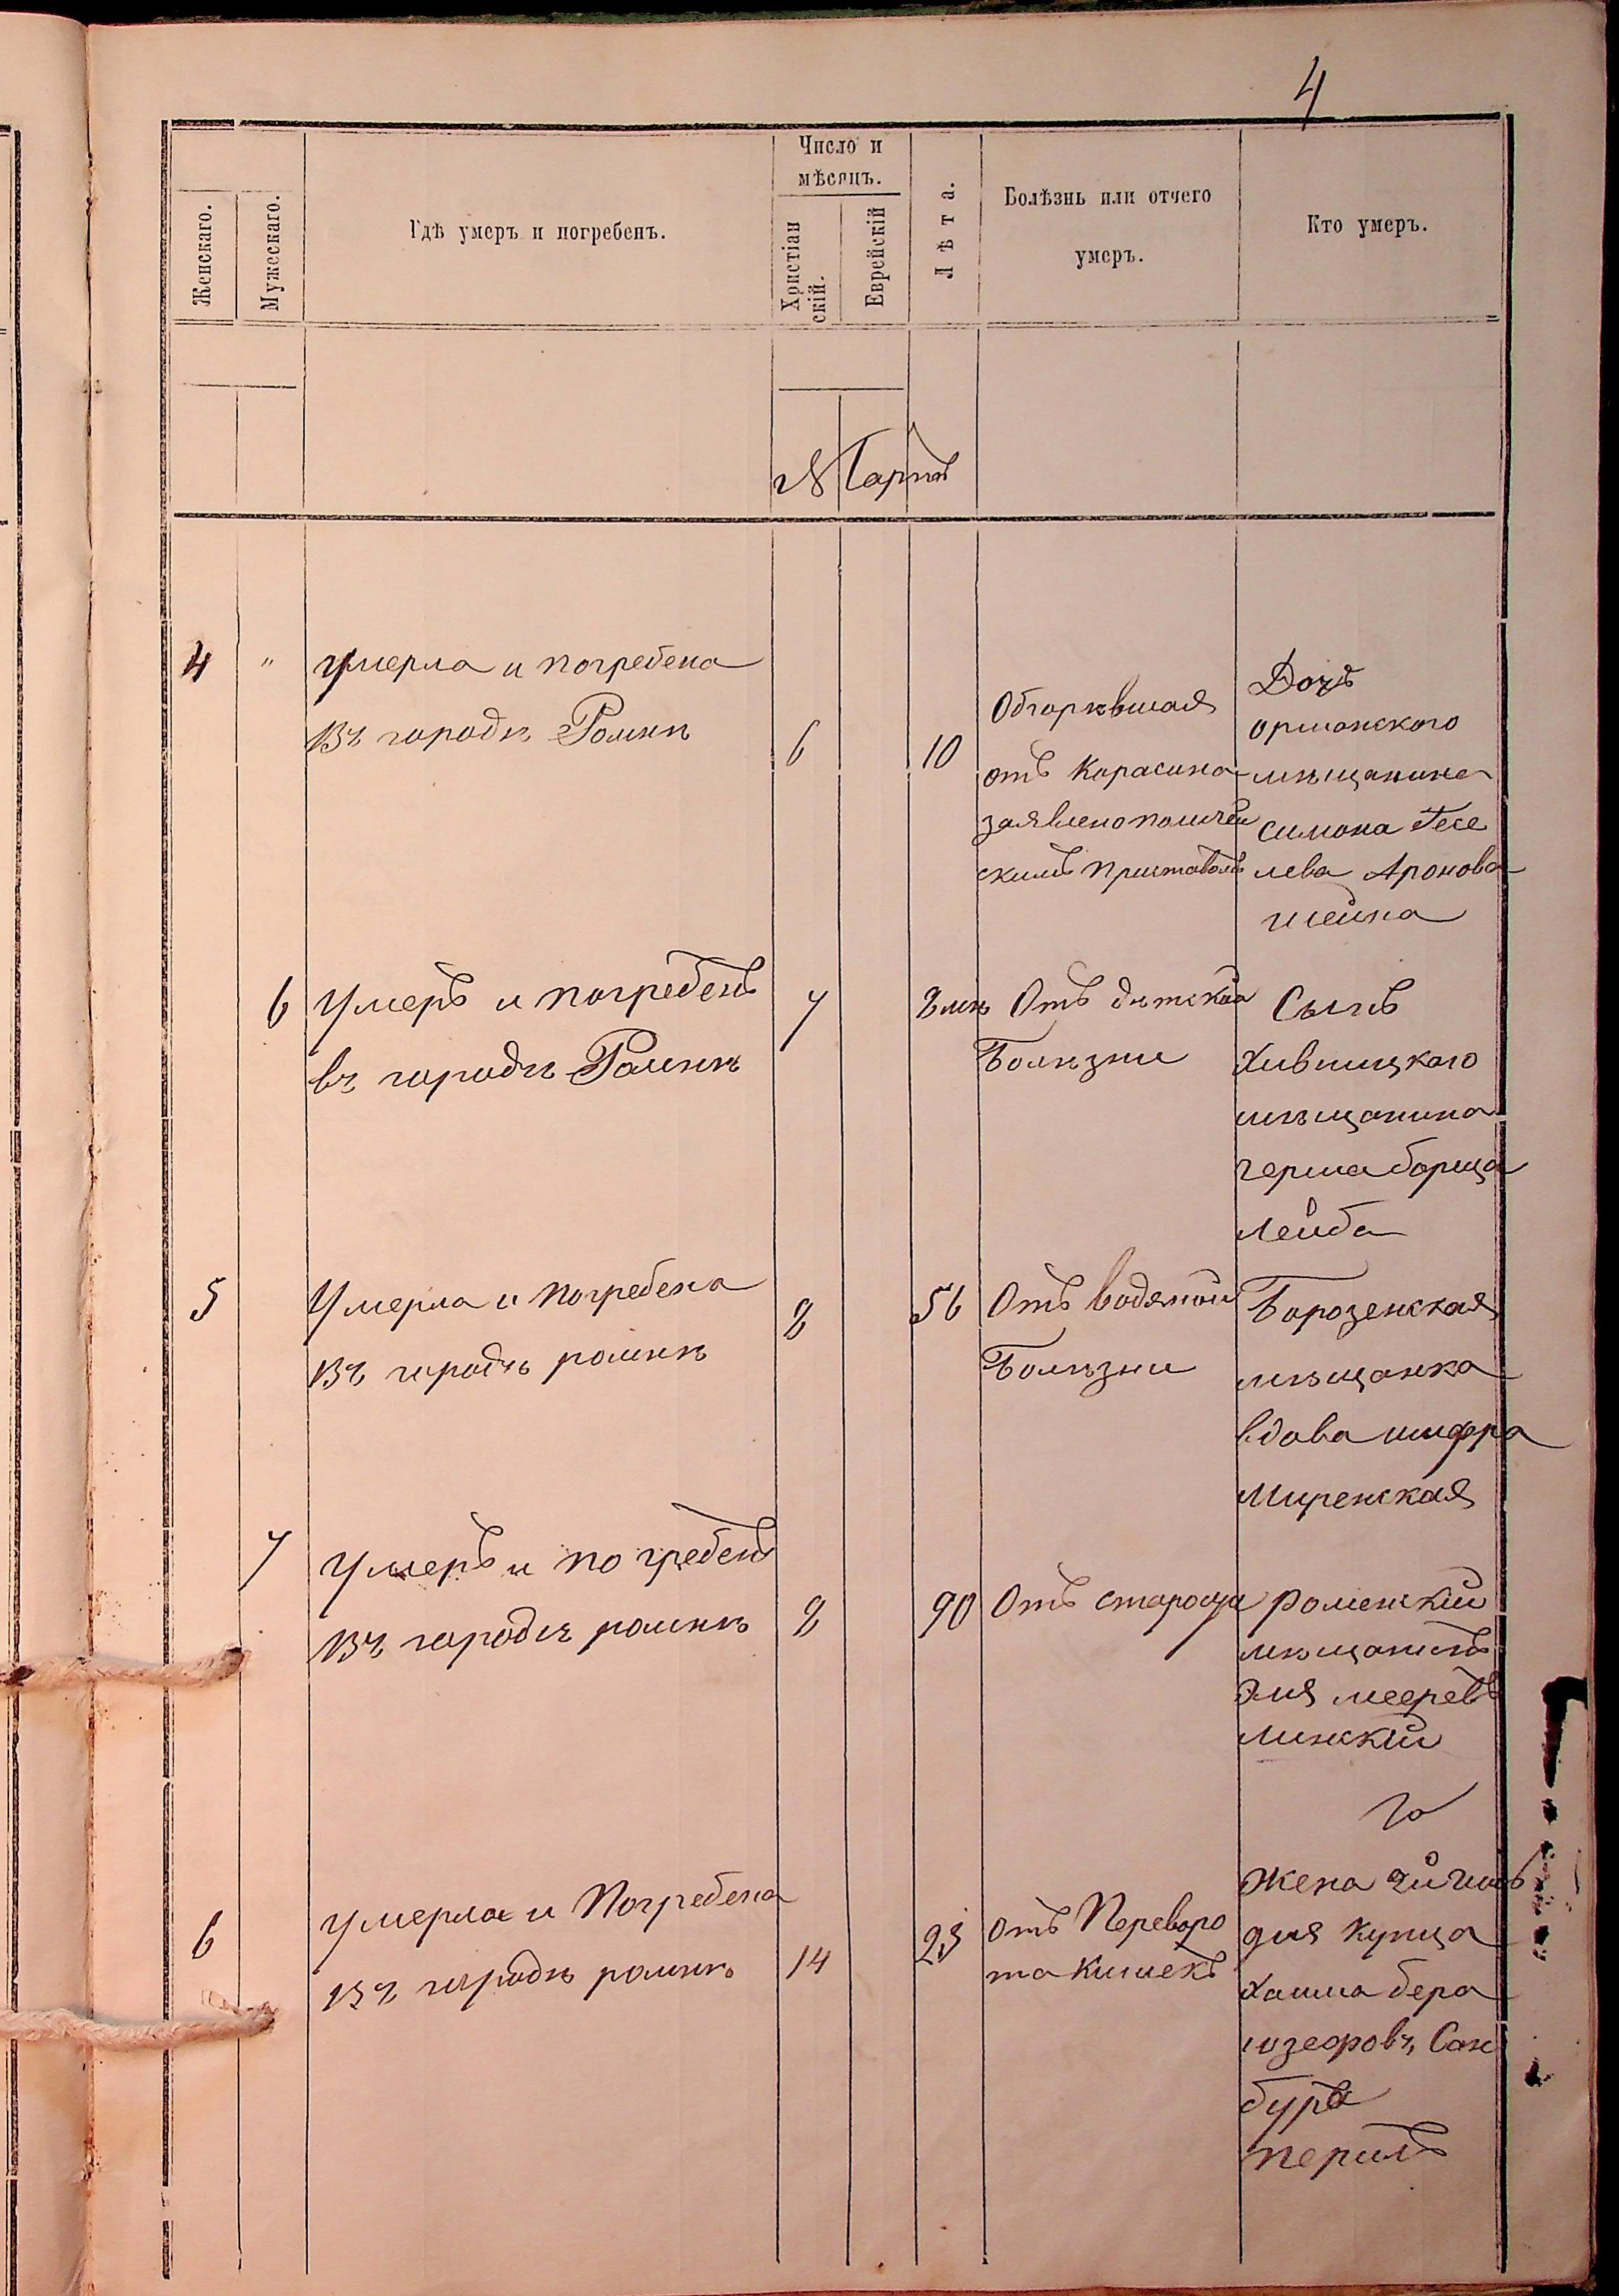 4
Женскаго.
Мужескаго.
Гдѣ умеръ и погребенъ.
Число и
мѣсяцъ.
Христіан
скій.
Еврейскій
Лѣта.
Болѣзнь или отчего
умеръ.
Кто умеръ.
Мартъ
4 " умерла и погребена
въ городѣ Ромнѣ
6
10
Обгорѣвшая
отъ карасина
заявлено полицей
скимъ приставомъ
Дочь
оршанского
мѣщанина
симона Гесе
лева Аронова
шейна
6 умеръ и погребенъ
въ городѣ Ромнѣ
7
8 мѣ
Отъ дѣтской
Болѣзни
Сынъ
мѣщанина
лейба
5 Умерла и погребена
въ городѣ ромнѣ
8
56
Отъ водяной
Болѣзни
Борозенская
мѣщанка
вдова шифра
Миренская
7 умеръ и погребенъ
въ городѣ ромнѣ
8
90
Отъ старосца
роменский
мѣщанинъ
Эля мееревъ
Линский
6 умерла и Погребена
въ городѣ ромнѣ
14
23
отъ Переворо
та кишекъ
го
Жена 2й гиль
дия купца
Хаима бера
юзефовъ, Сан
бура
перилъ